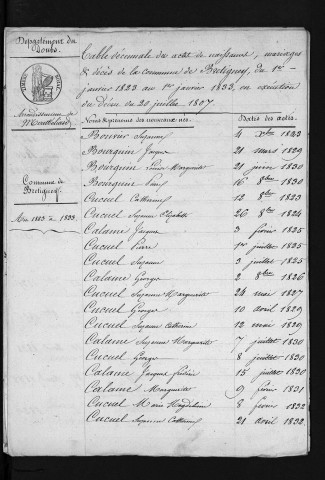 Département du
Doubs
Arrondissement de
Montbéliard
Commune de
Bretigney
An 1823 à 1833.
Table décennale des actes de naissances, mariages
& décès de la commune de Bretigney, du 1er
janvier 1823 au 1er janvier 1833, en exécution
du décret du 20 juillet 1807.
Noms et prénoms des nouveaux nés. Dates des actes.
Bouvier Suzanne 4 Xbre 1823
Bourquin Jacques 21 mars 1829
Bourquin Louise Marguerite 21 juin 1830
Bourquin 16 8bre 1830
Cucuel Catherine 12 8bre 1823
Cucuel Suzanne Elisabeth 26 8bre 1824
Calame Jacques 3 février 1825
Cucuel Pierre 1er juillet 1825
Cucuel Suzanne 3 juillet 1825
Calame Georges 2 8bre 1826
Cucuel Suzanne Marguerite 24 mai 1827
Cucuel Georges 10 avril 1829
Cucuel Suzanne Catherine 12 mai 1829
Calame Suzanne Marguerite 7 juillet 1830
Cucuel Georges 8 juillet 1830
Calame Jacques Frédéric 15 juillet 1830
Calame Marguerite 9 février 1831
Cucuel Marie Magdeleine 8 février 1832
Cucuel Suzanne Catherine 21 avril 1832